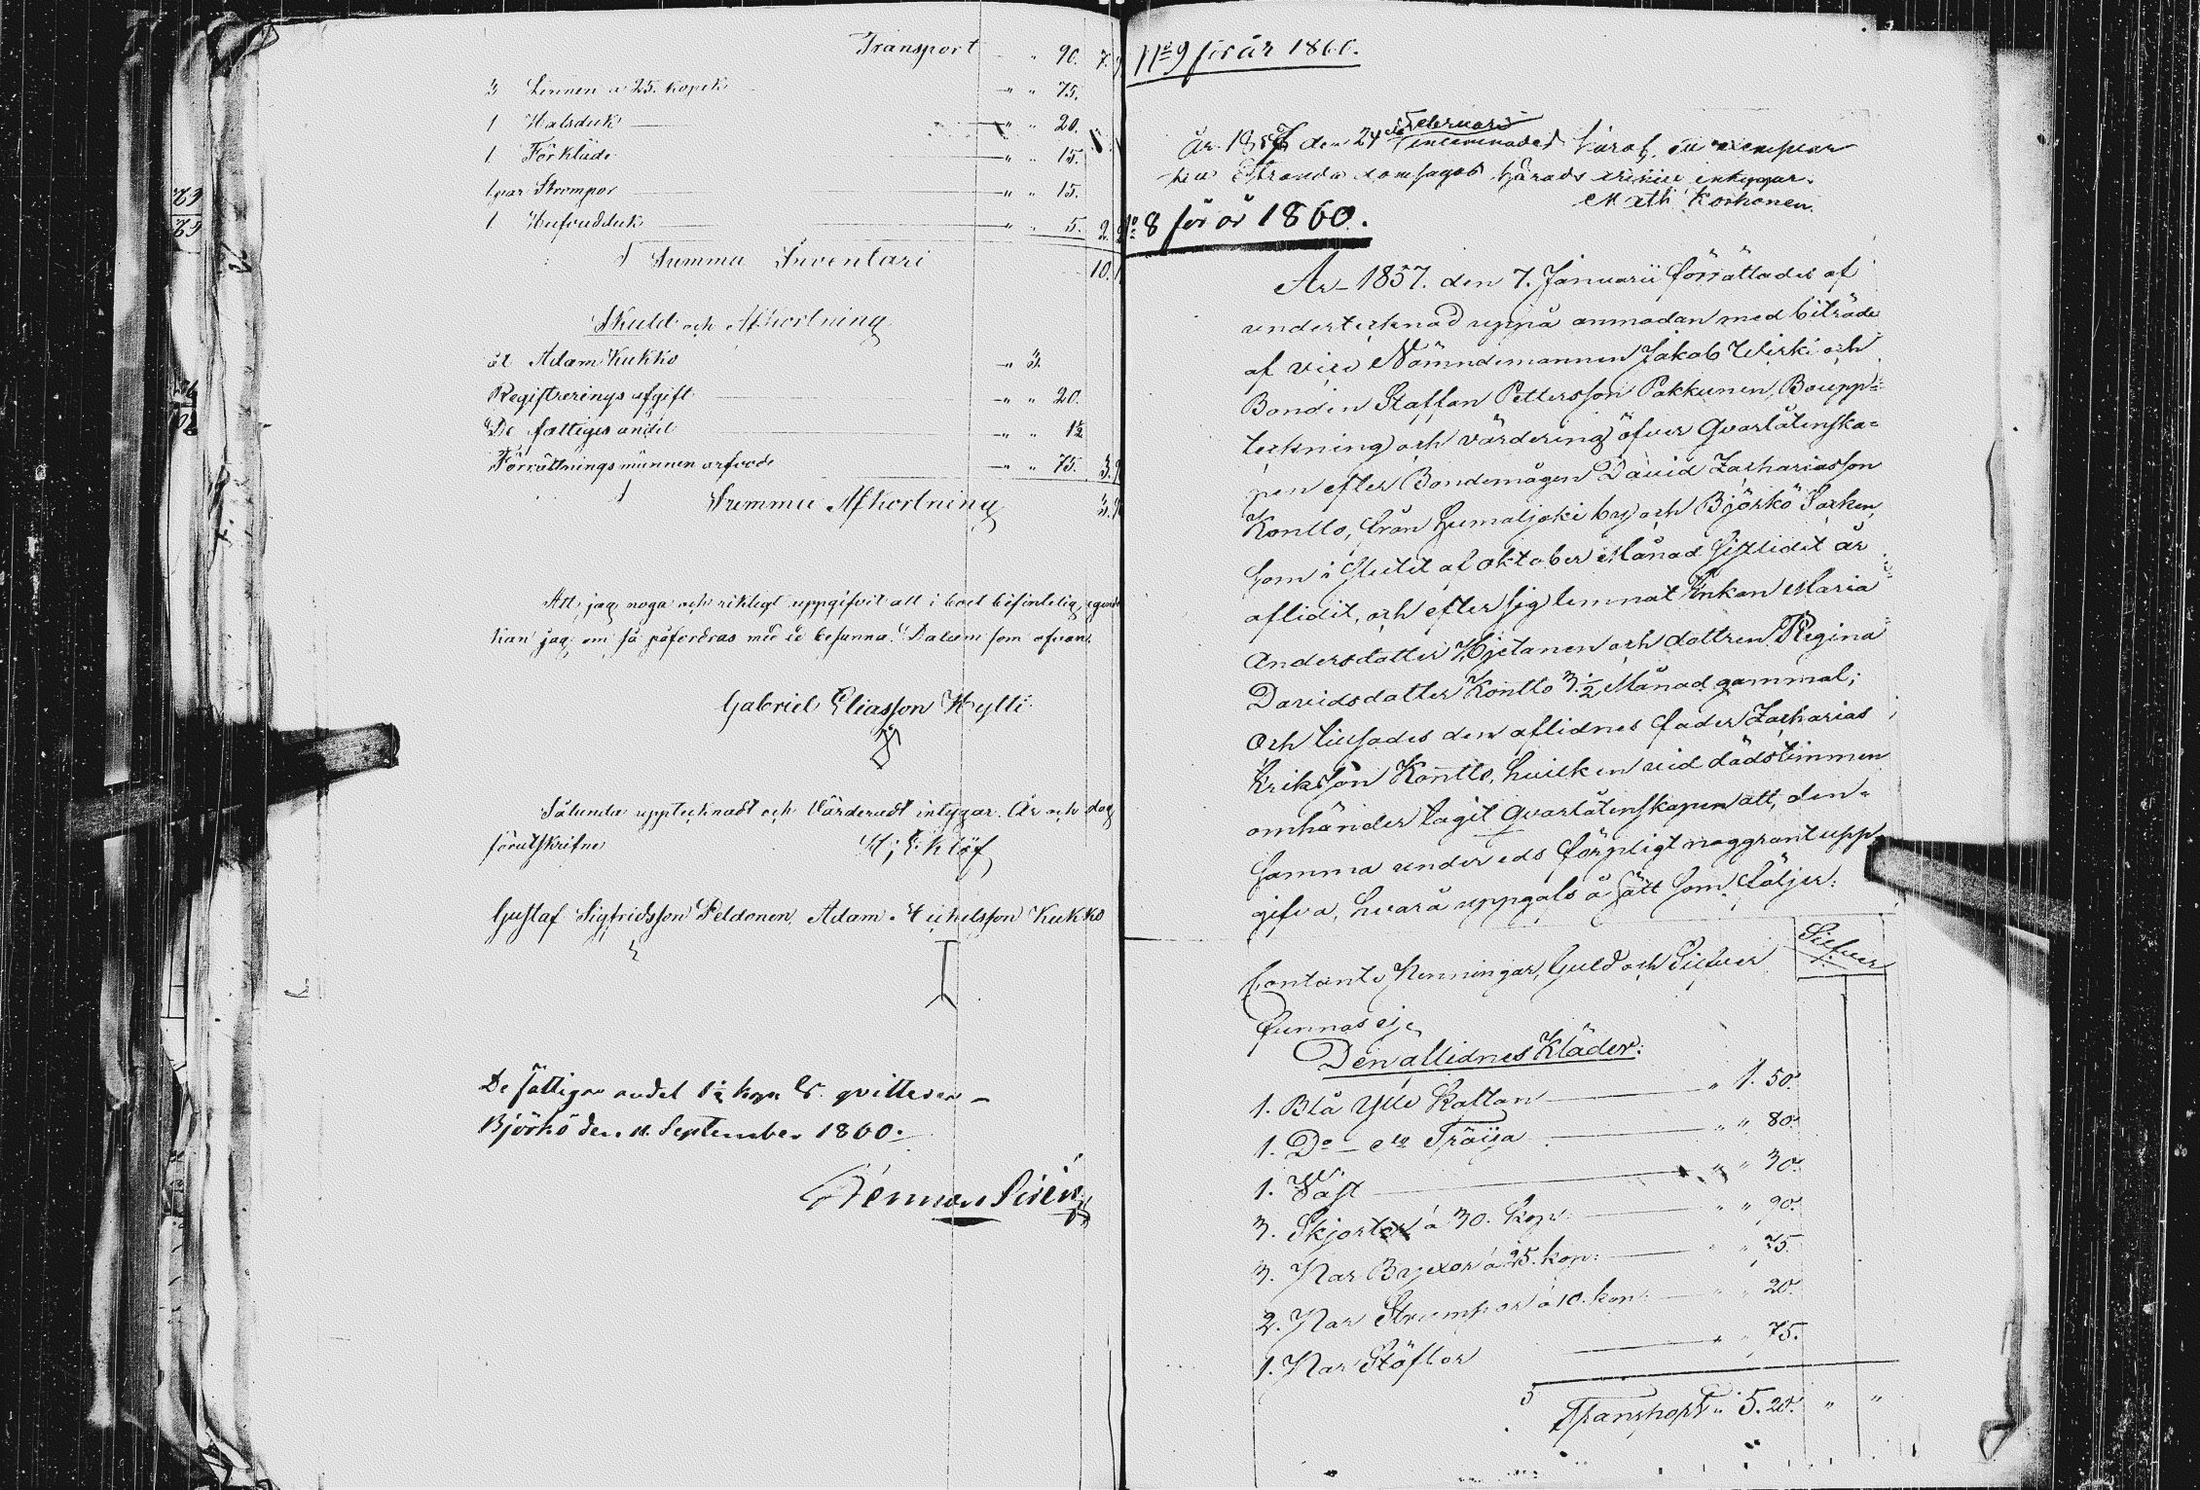 Transport " 90. 7.
3 Linnen a 25. kopek " " 75.
1 Halsduk " " 20.
1 Förkläde " " 15.
1 par Strumpor " " 15.
1 Hufvudduk " " 5. 2.
Summa Inventari 10.
Skuld och Afkortning
åt Adam Kukko " 3.
Registrerings afgift " " 20.
De fattiges andel " " 1½
Förrättningsmännen arfvode " " 75. 3.
Summa Afkortning 3.
Att jag noga och riktigt uppgifvit allt i boet befintelig egendo
kan jag om så påfordras med ed besanna. Datum som ofvan.
Gabriel Eliasson Hytti
Sålunda upptecknadt och Värderadt intygar. År och dag
förutskrifne
Gustaf Sigfridsson Peldonen, Adam Michelsson Kukko
De fattigas andel 1½ kop. S. qvitteras
Björkö den 11. September 1860.
Herman Sirén
No 9 för år 1860.
År 1857 den 24 Februarii inlemnades häraf ett exemplar
Stranda domsagas Härads arkive, intygar.
Math. Korhonen.
No 8 för år 1860.
År 1857. den 7. Januarii förrättades af
undertecknad uppå anmodan med biträde
af vice Nämndemannen Jakob Wirki och
Bonden Staffan Pettersson Pakkunen, Boupp=
teckning och värdering öfver Qvarlåtenska=
pen efter Bondemågen David Zachariasson
Kontto, från Humaljoki by och Björkö Socken,
som i slutet af Oktober Månad sistlidit år
aflidit, och efter sig lemnat Enkan Maria
Andersdotter Hjetanen och dottren Regina
Davidsdotter Kontto 3½ Månad gammal;
Och tillsades den aflidnes fader Zacharias
Eriksson Kontto, hvilken vid dödstimmen
omhänder tagit Qvarlåtenskapen att, den=
samma under eds förpligt noggrant upp
gifva, hvarå uppgafs å sätt som följer:
Silfver
Contante Penningar, Guld och Silfver
funnos ej.
Den aflidnes Kläder:
1. Blå Ylle Kaftan " 1. 50.
1. Do do Tröija " " 80.
1. Väst " " 30.
3. Skjortor á 30. kop. " " 90.
3. Par Byxor á 25. kop: " " 75.
2. Par Strumpor á 10. kop: " " 20.
1. Par Stöflor " " 75.
Transport " 5. 20. " "